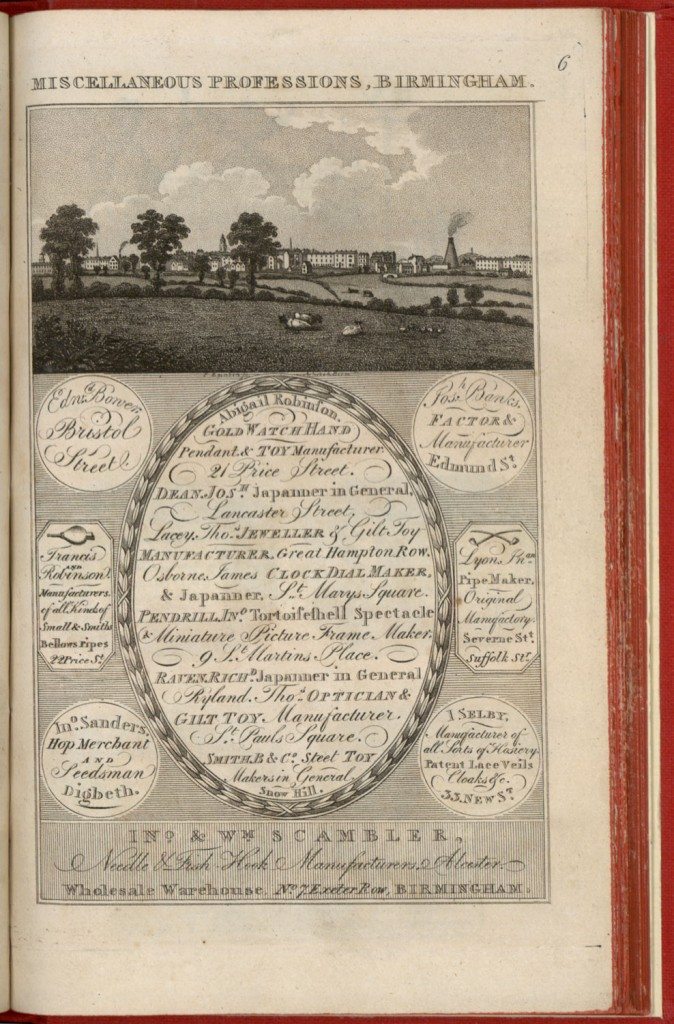 6
MISCELLANEOUS PROFESSIONS, BIRMINGHAM.
Edwd. Bower,
Bristol
Street.
Josh. Banks.
FACTOR &
Manufacturer
Edmund St.
Abigail Robinson.
GOLD WATCH HAND
Pendant & TOY Manufacturer
21 Price Street.
DEAN. JOSH. Japanner in General,
Lancaster Street.
Lacey, Thos. JEWELLER & Gilt Toy
MANUFACTURER, Great Hampton Row.
Osborne, James CLOCK DIAL MAKER,
& Japanner, St. Marys Square.
PENDRILL, Jno. Tortoiseshell Spectacle
& Miniature Picture Frame Maker.
9 St. Martins Place.
RAVEN, RICHD. Japanner in General
Ryland. Thos. OPTICIAN &
GILT TOY Manufacturer.
St. Pauls Square.
SMITH. B & Co. Steet TOY
Makers in General
Snow Hill.
Francis
AND
Robinson.
Manufacturers.
of all Kinds of
Small & Smiths
Bellows Pipes
22 Price St.
Lyon, Jnan
Pipe Maker,
Original
Manufactory.
Severne St.
Suffolk St.
Jno. Sanders,
Hop Merchant
AND
Seedsman
Digbeth.
I SELBY,
Manufacturer of
all Sorts of Hosiery
Patent Lace Veils
Cloaks &c.
33, NEW ST.
JNO. & WM SCAMBLER,
Needle & Fish-Hook Manufacturers, Alcester
Wholesale Warehouse, No. 7, Exeter Row, BIRMINGHAM.